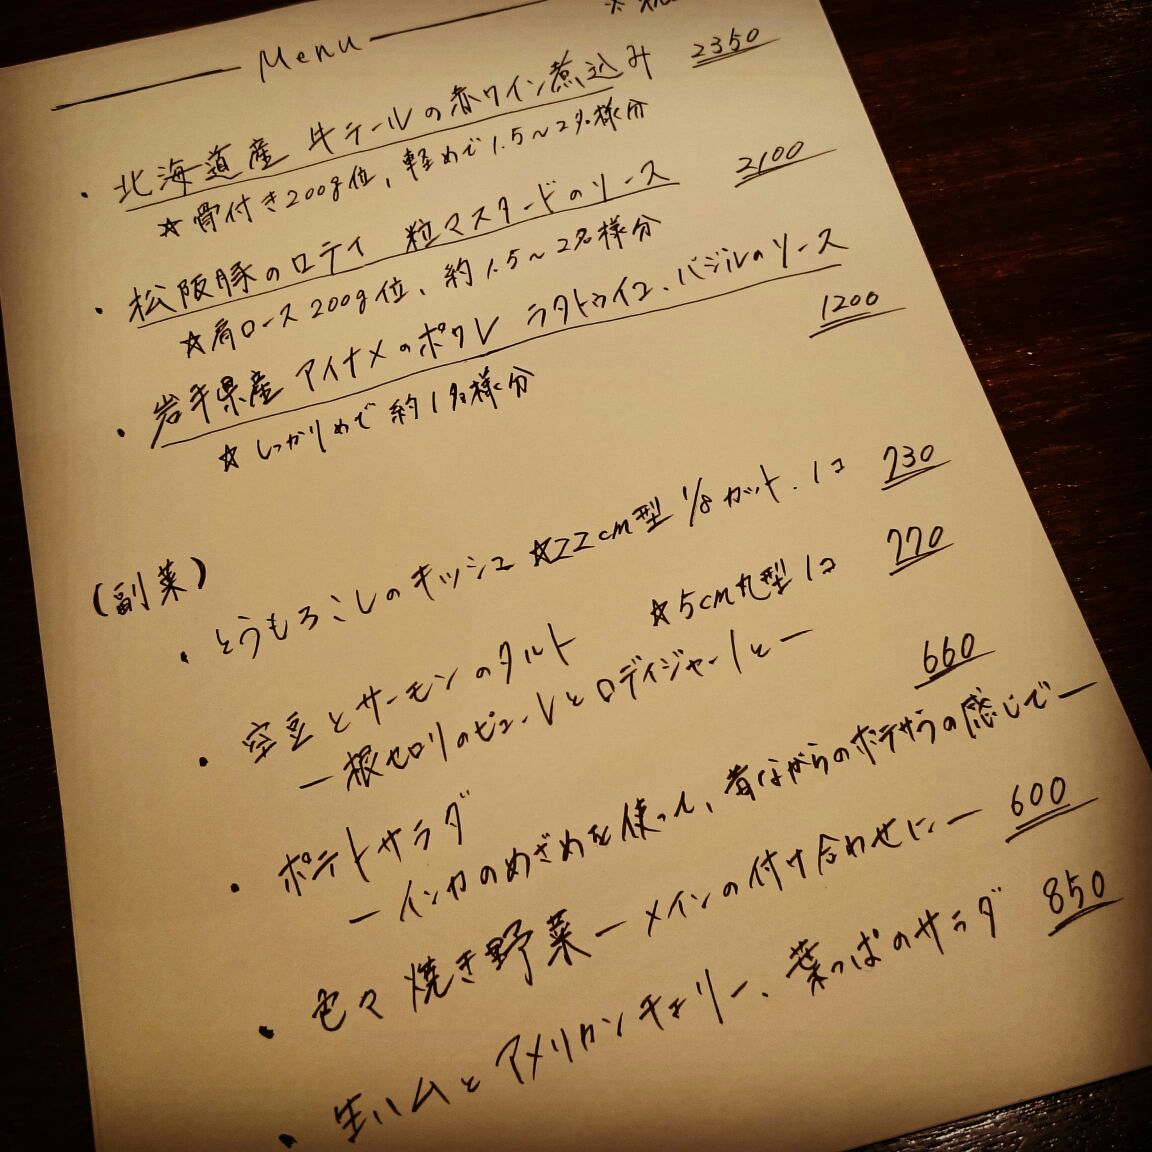 Menu
・北海道産 牛テールの赤ワイン煮込み 2350
☆骨付き200g位、軽めで1.5〜2名様分
・松阪豚のロティ 粒マスタードのソース 2100
☆肩ロース200g位、約1.5〜2名様分
・岩手県産 アイナメのポワレ ラタトゥイユ、バジルのソース 1200
☆しっかりめで約1名様分
(副菜)
・とうもろこしのキッシュ ☆22cm型 1/8カット、1コ 730
・空豆とサーモンのタルト ☆5cm丸型1コ 770
ー根セロリのピューレとロディジャーノとー
・ポテトサラダ 660
ーインカのめざめを使って、昔ながらのポテサラの感じでー
・色々焼き野菜ーメインの付け合わせにー 600
・生ハムとアメリカンチェリー、葉っぱのサラダ 850